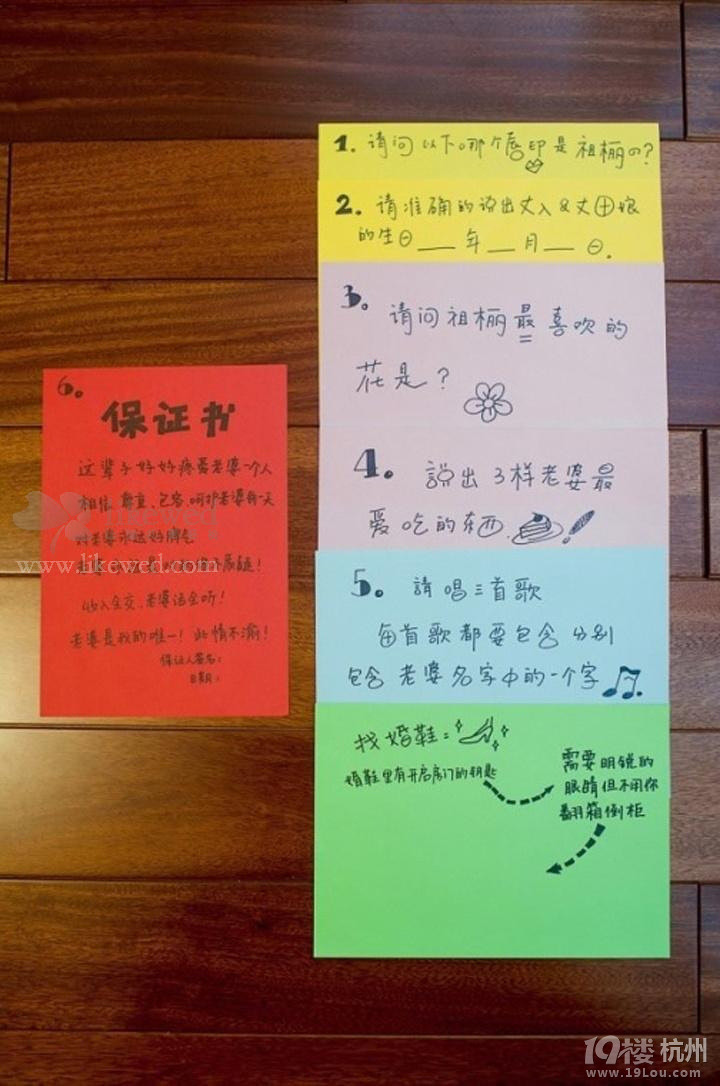 1. 请问以下哪个唇印是祖栭の?
2. 请准确的说出丈人&丈母娘
的生日___年___月___日.
3. 请问祖栭最喜欢的
花是?
4. 説出3样老婆最
爱吃的东西
5. 請唱三首歌
每首歌都要包含分别
包含老婆名字中的一个字
找婚鞋:
婚鞋里有开启房门的钥匙
需要明锐的
眼睛但不用你
翻箱倒柜
6.
保证书
这辈子好好疼爱老婆一个人
相信、尊重、包容、呵护老婆每一天
对老婆永远好脾气
老婆
收入全交,老婆话全听!
老婆是我的唯一!此情不渝!
保证人签名:
日期:
likewed
www.likewed.com
19楼 杭州
www.19Lou.com